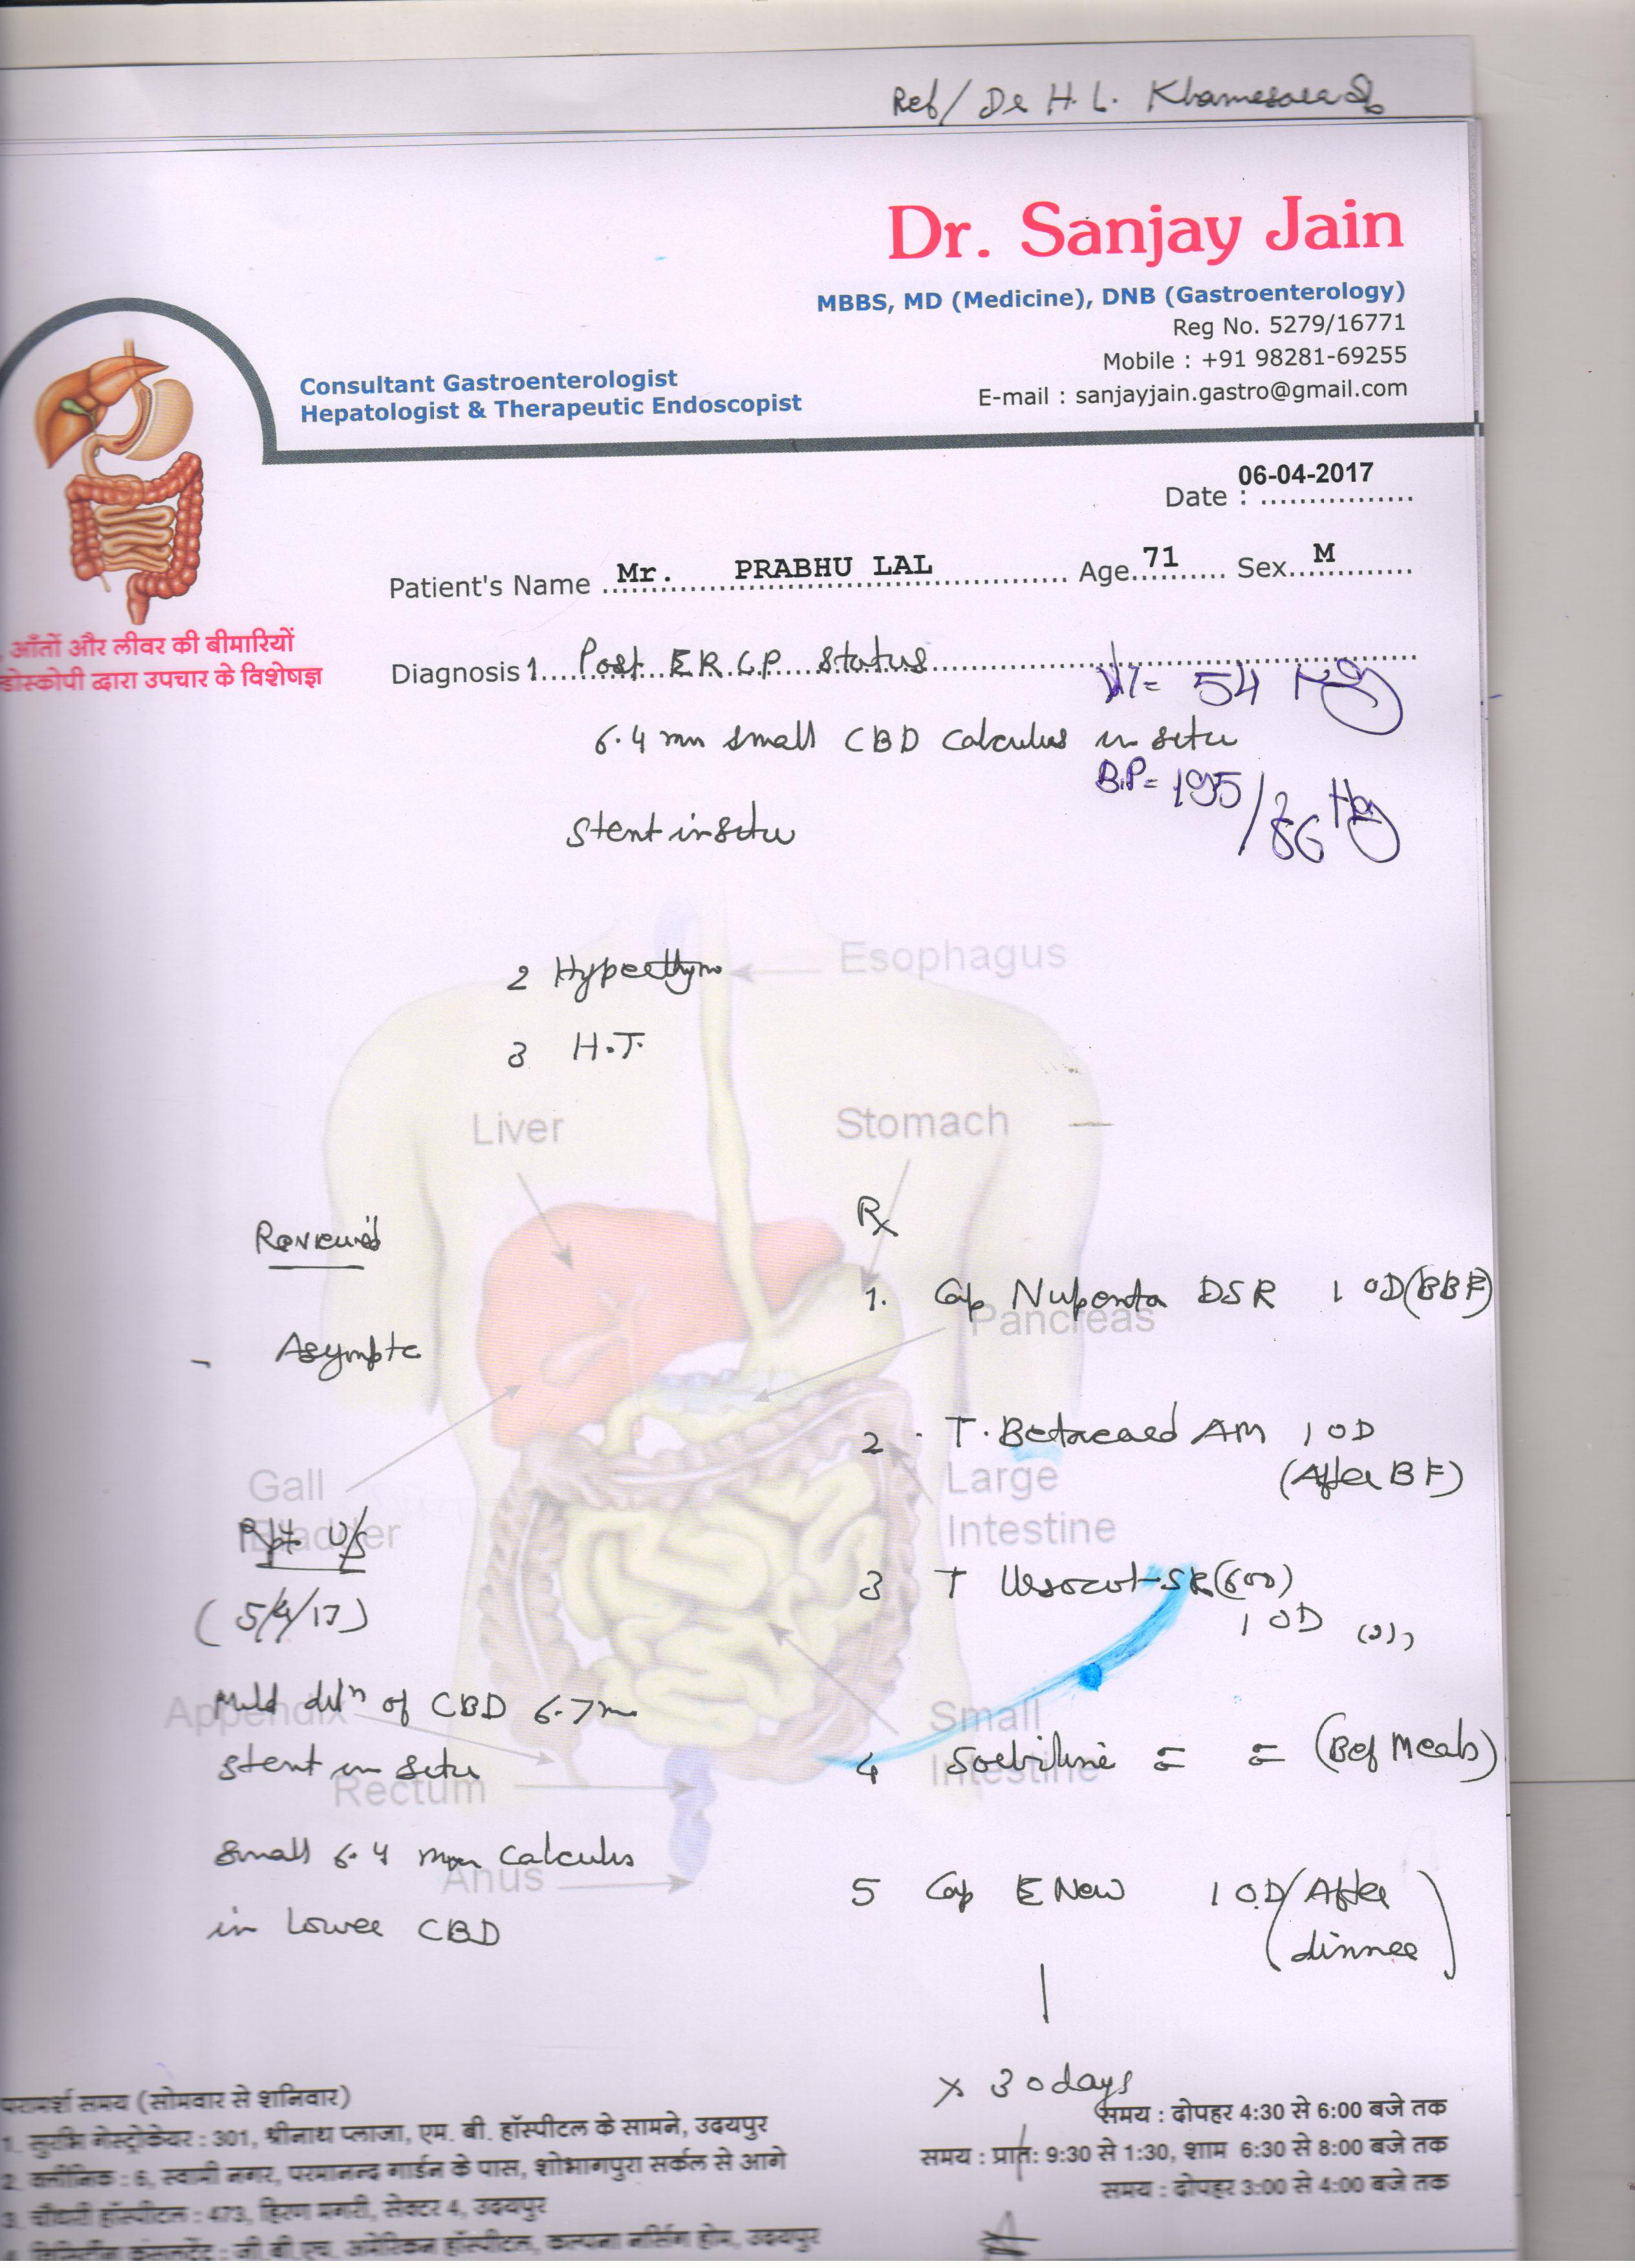 Ref/ Dr H. L. Khamesara
Dr. Sanjay Jain
MBBS, MD (Medicine), DNB (Gastroenterology)
Reg No. 5279/16771
Mobile : +91 98281-69255
E-mail : sanjayjain.gastro@gmail.com
Consultant Gastroenterologist
Hepatologist & Therapeutic Endoscopist
Date : 06-04-2017
Patient's Name Mr. PRABHU LAL Age 71 Sex M
आँतों और लीवर की बीमारियों
डोस्कोपी द्वारा उपचार के विशेषज्ञ
Diagnosis 1. Post ERCP status
Wt = 54 Kg
6.4 mm small CBD calculus in situ
B.P = 195/86 Hg
stent in situ
Esophagus
2 Hyperthyro
3 H.T.
Liver
Stomach
Rx
Reviewed
1. Cap Nupenta DSR 1 OD (BBF)
Pancreas
- Asympto
2. T. Betacard AM 1 OD
(After BF)
Gall
Bladder
Large
Intestine
Rpt U/S
(5/4/17)
3 T Ursocol-SR (600)
1 OD
Appendix
Mild diln of CBD 6.7 m
Small
Intestine
4 Sorbiline = = (Bef Meals)
stent in situ
Rectum
small 6.4 mm calculus
Anus
in lower CBD
5 Cap E New 1 OD (After
dinner)
x 30 days
परामर्श समय (सोमवार से शनिवार)
समय : दोपहर 4:30 से 6:00 बजे तक
1. सुरभि गेस्ट्रोकेयर : 301, श्रीनाथ प्लाजा, एम. बी. हॉस्पीटल के सामने, उदयपुर
समय : प्रात: 9:30 से 1:30, शाम 6:30 से 8:00 बजे तक
2. क्लीनिक : 6, स्वामी नगर, परमानन्द गार्डन के पास, शोभागपुरा सर्कल से आगे
समय : दोपहर 3:00 से 4:00 बजे तक
3. चौधरी हॉस्पीटल : 473, हिरण मगरी, सेक्टर 4, उदयपुर
4. विजिटिंग कंसलटेंट : जी बी एच अमेरिकन हॉस्पीटल, कल्पना नर्सिंग होम, उदयपुर